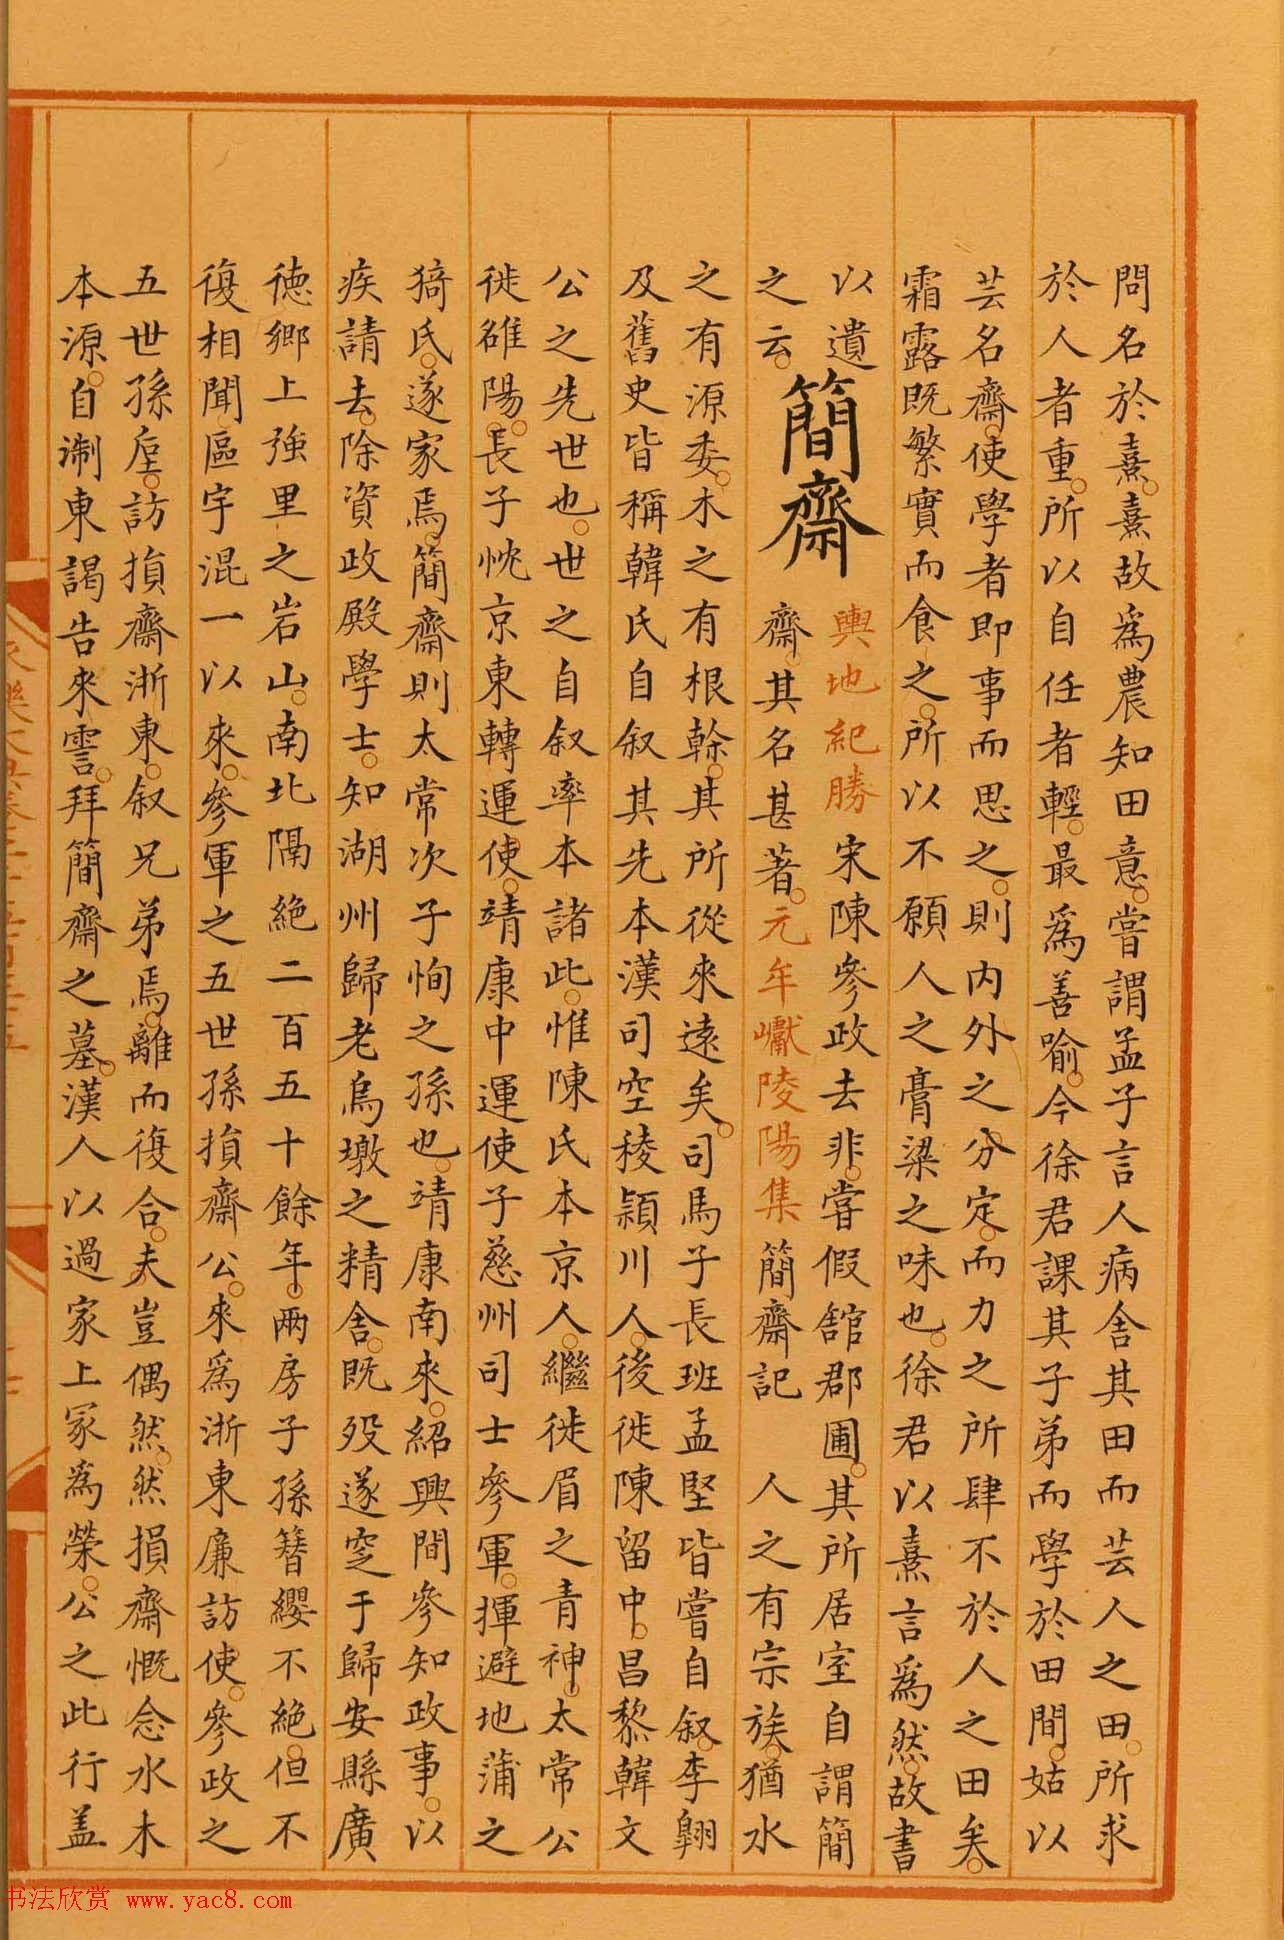 問名於熹熹故爲農知田意嘗謂孟子言人病舍其田而芸人之田所求
於人者重所以自任者輕最爲善喻今徐君課其子弟而學於田間姑以
芸名齋使學者即事而思之則内外之分定而力之所肆不於人之田矣
霜露既繁實而食之所以不願人之膏粱之味也徐君以熹言爲然故書
以遺
之云
簡齋
輿地紀勝宋陳參政去非嘗假館郡圃其所居室自謂簡
齋其名甚著元牟巘陵陽集簡齋記 人之有宗族猶水
之有源委木之有根榦其所從來遠矣司馬子長班孟堅皆嘗自叙李翱
及舊史皆稱韓氏自叙其先本漢司空稜潁川人後徙陳留中昌黎韓文
公之先世也世之自叙率本諸此惟陳氏本京人繼徙眉之青神太常公
徙雒陽長子忱京東轉運使靖康中運使子慈州司士參軍揮避地蒲之
猗氏遂家焉簡齋則太常次子恂之孫也靖康南來紹興間參知政事以
疾請去除資政殿學士知湖州歸老烏墩之精舍既歿遂窆于歸安縣廣
德鄉上強里之岩山南北隔絶二百五十餘年兩房子孫簪纓不絶但不
復相聞區宇混一以來參軍之五世孫損齋公來爲浙東廉訪使參政之
五世孫㕓訪損齋浙東叙兄弟焉離而復合夫豈偶然然損齋慨念水木
本源自淛東謁告來霅拜簡齋之墓漢人以過家上冢爲榮公之此行盖
书法欣赏 www.yac8.com